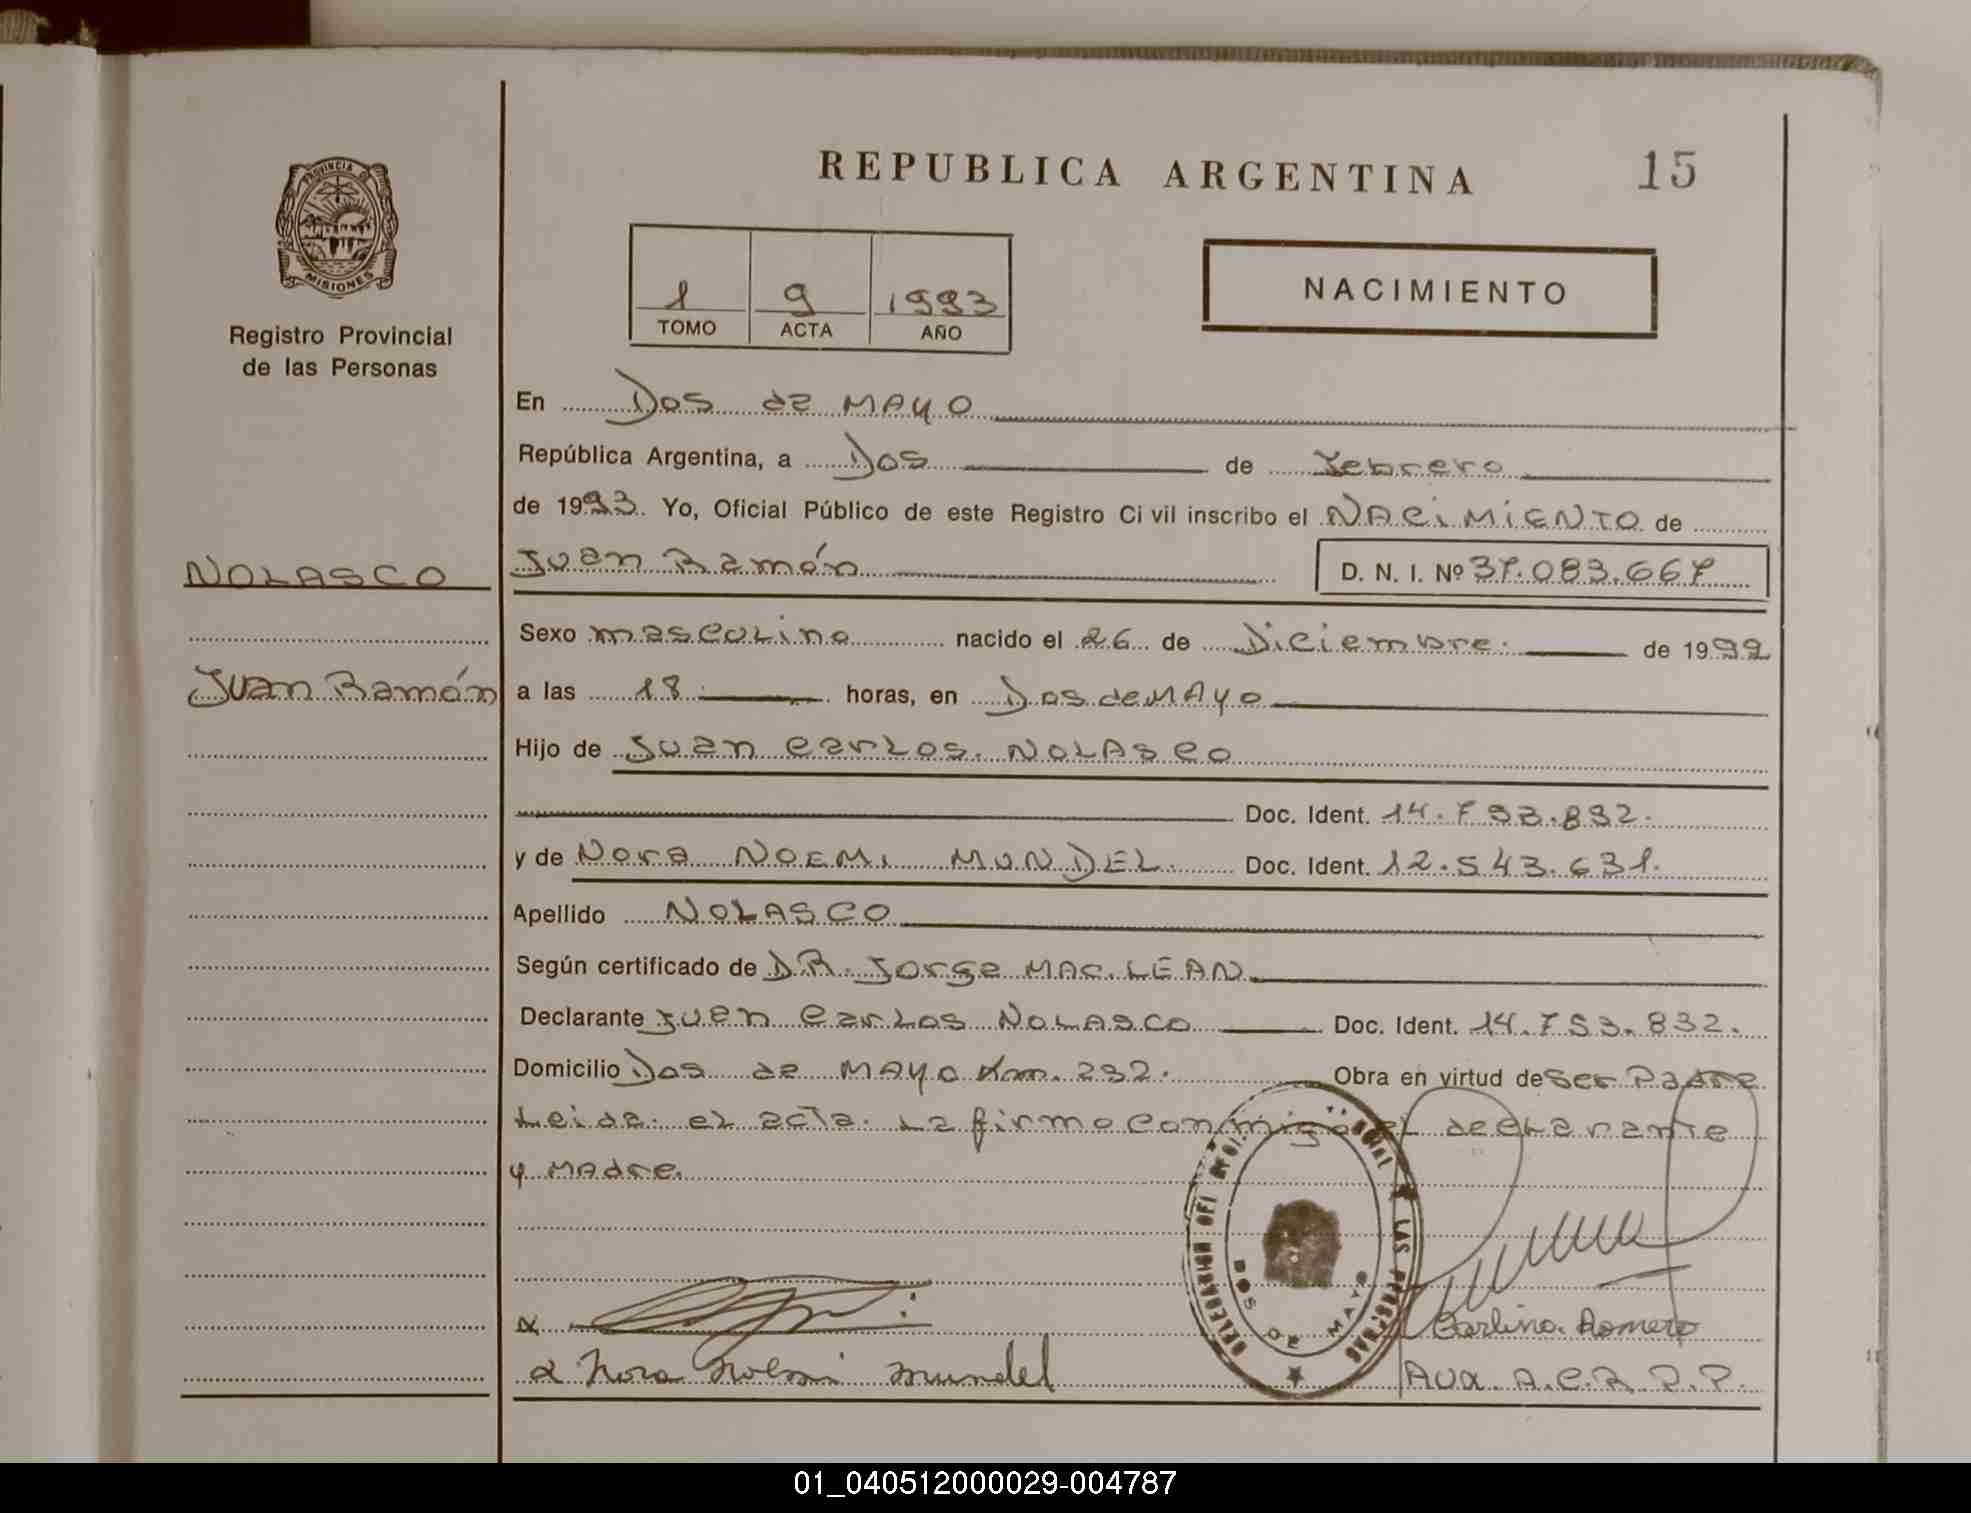 REPUBLICA ARGENTINA
15
PROVINCIA DE
MISIONES
Registro Provincial
de las Personas
1 9 1993
TOMO ACTA AÑO
NACIMIENTO
En Dos de MAYO
República Argentina, a Dos de Febrero
de 1993. Yo, Oficial Público de este Registro Ci vil inscribo el NACIMIENTO de
NOLASCO
Juan Ramón D. N. I. Nº 37.083.667
Sexo mascolino nacido el 26 de Diciembre. de 1992
Juan Ramón
a las 18 horas, en Dos de MAYO
Hijo de Juan Carlos. NOLASCO
Doc. Ident. 14.793.832.
y de Nora NOEMI MUNDEL. Doc. Ident. 12.543.631.
Apellido NOLASCO
Según certificado de DR. Jorge MAC.LEAN
Declarante Juan Carlos NOLASCO Doc. Ident. 14.793.832.
Domicilio Dos de MAYO Km. 232. Obra en virtud de ser Padre
Leida. el acta. La firmo conmigo el declarante
y MAdre.
DOS DE MAYO
LAS PERSONAS
Nora Noemi mundel
Carlino Romero
Aux. A.C.R.P.P.
01_040512000029-004787